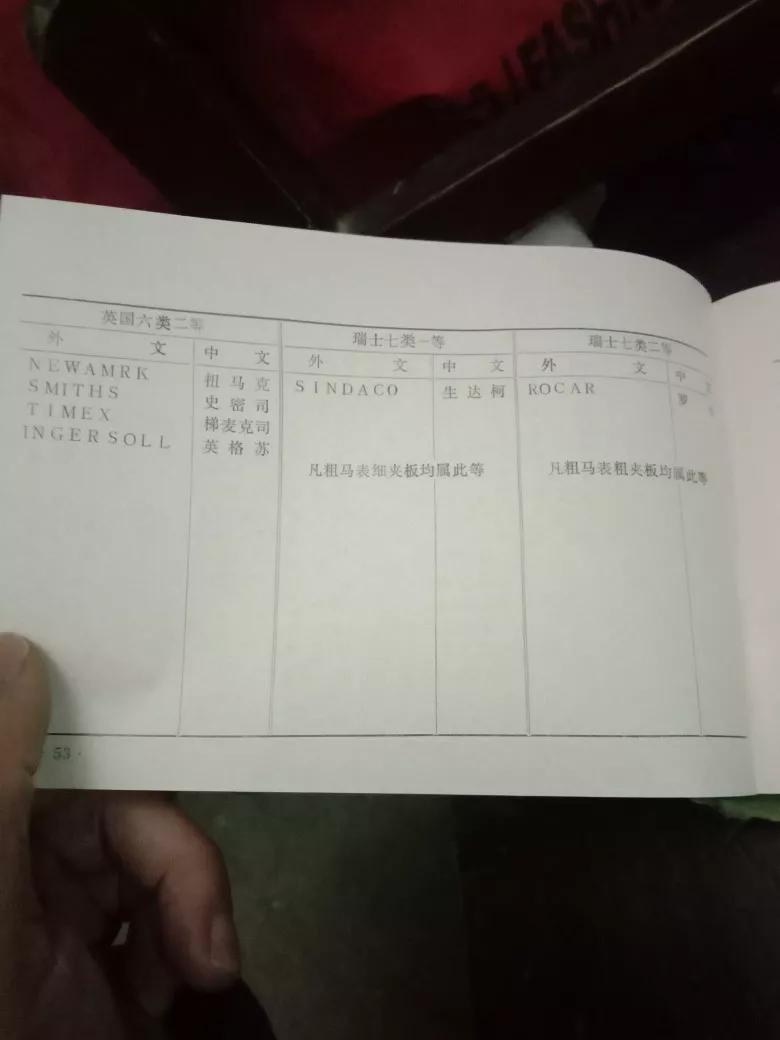 FASHI
英国六类二等
外 文 中 文
NEWAMRK 祖马克
SMITHS 史密司
TIMEX 梯麦克司
INGERSOLL 英格苏
瑞士七类一等
外 文 中 文
SINDACO 生达柯
凡粗马表细夹板均属此等
瑞士七类二等
外 文 中 文
ROCAR 罗
凡粗马表粗夹板均属此等
· 53 ·